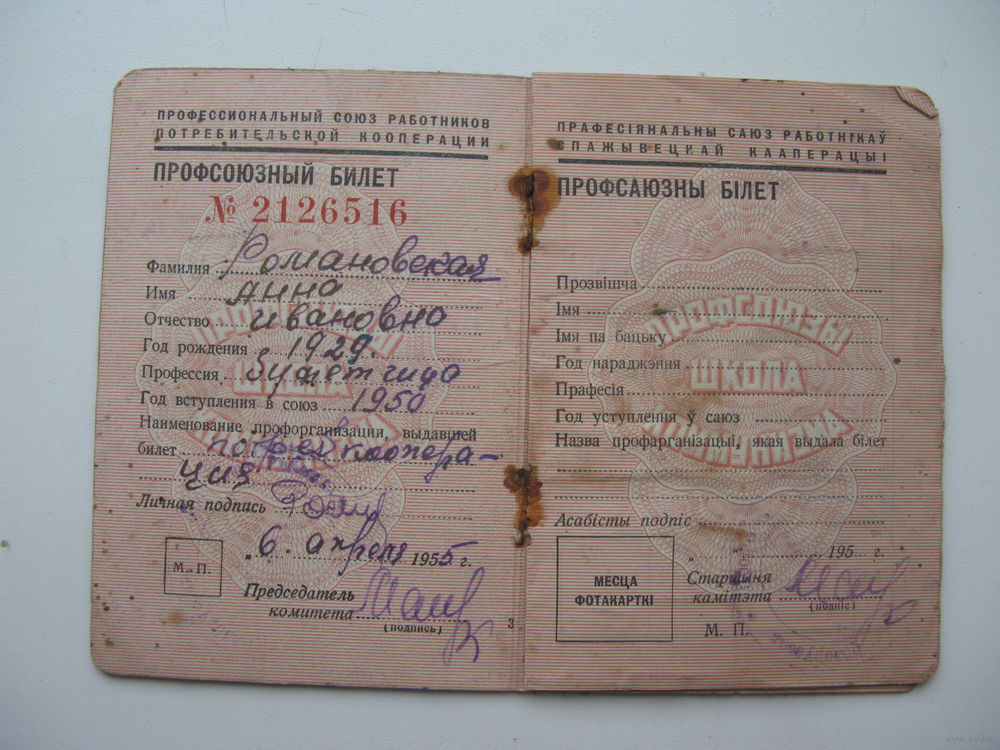 ПРОФЕССИОНАЛЬНЫЙ СОЮЗ РАБОТНИКОВ
ПОТРЕБИТЕЛЬСКОЙ КООПЕРАЦИИ
ПРОФСОЮЗНЫЙ БИЛЕТ
№ 2126516
Фамилия Романовская
Имя Анна
Отчество Ивановна
Год рождения 1929.
Профессия Буфетчица
Год вступления в союз 1950
Наименование профорганизации, выдавшей
билет потребкоопера-
ция
Личная подпись
„6. апреля 1955 г.
М. П.
Председатель
комитета
(подпись)
3
ПРАФЕСІЯНАЛЬНЫ САЮЗ РАБОТНІКАЎ
СПАЖЫВЕЦКАЙ КААПЕРАЦЫІ
ПРОФСАЮЗНЫ БІЛЕТ
Прозвішча
Імя
Імя па бацьку
Год нараджэння
Прафесія
Год уступлення ў саюз
Назва профарганізацыі, якая выдала білет
Асабісты подпіс
„ “ 195 г.
МЕСЦА
ФОТАКАРТКІ
Старшыня
камітэта
(подпіс)
М. П.
ПРОФСОЮЗЫ
ШКОЛА
КОММУНИЗМА
www.ay.by